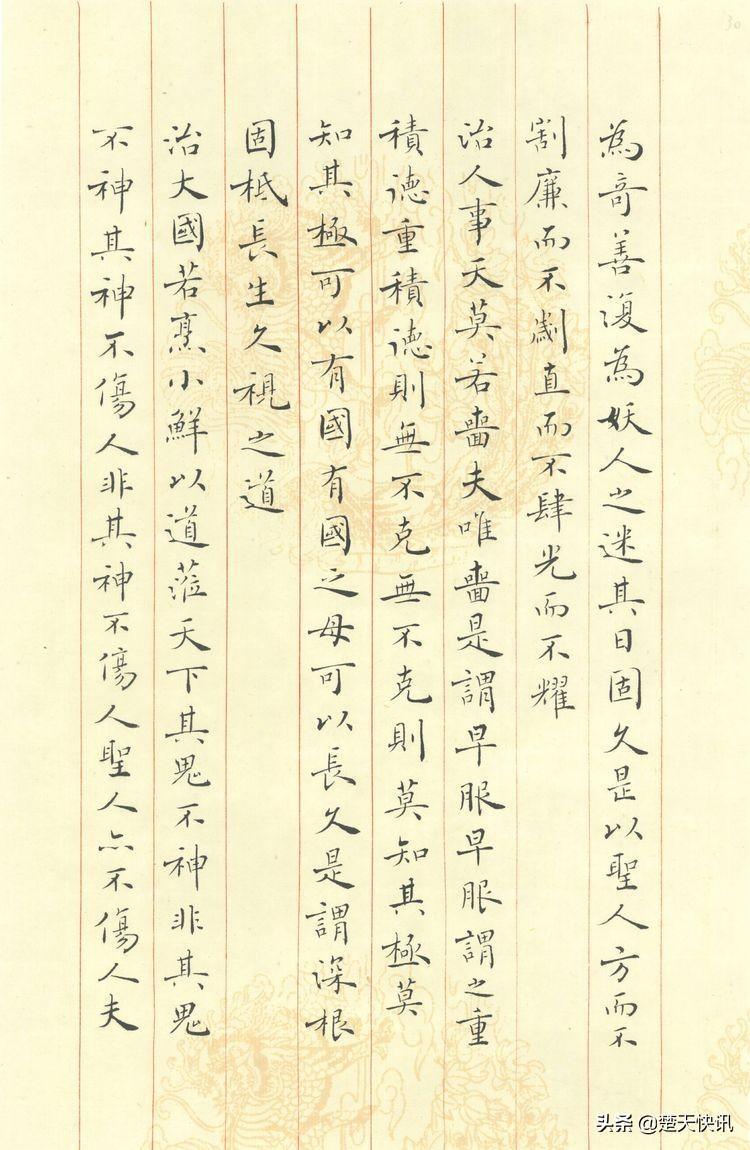 30
為奇善復為妖人之迷其日固久是以聖人方而不
割廉而不劌直而不肆光而不耀
治人事天莫若嗇夫唯嗇是謂早服早服謂之重
積德重積德則無不克無不克則莫知其極莫
知其極可以有國有國之母可以長久是謂深根
固柢長生久視之道
治大國若烹小鮮以道蒞天下其鬼不神非其鬼
不神其神不傷人非其神不傷人聖人亦不傷人夫
头条 @楚天快讯